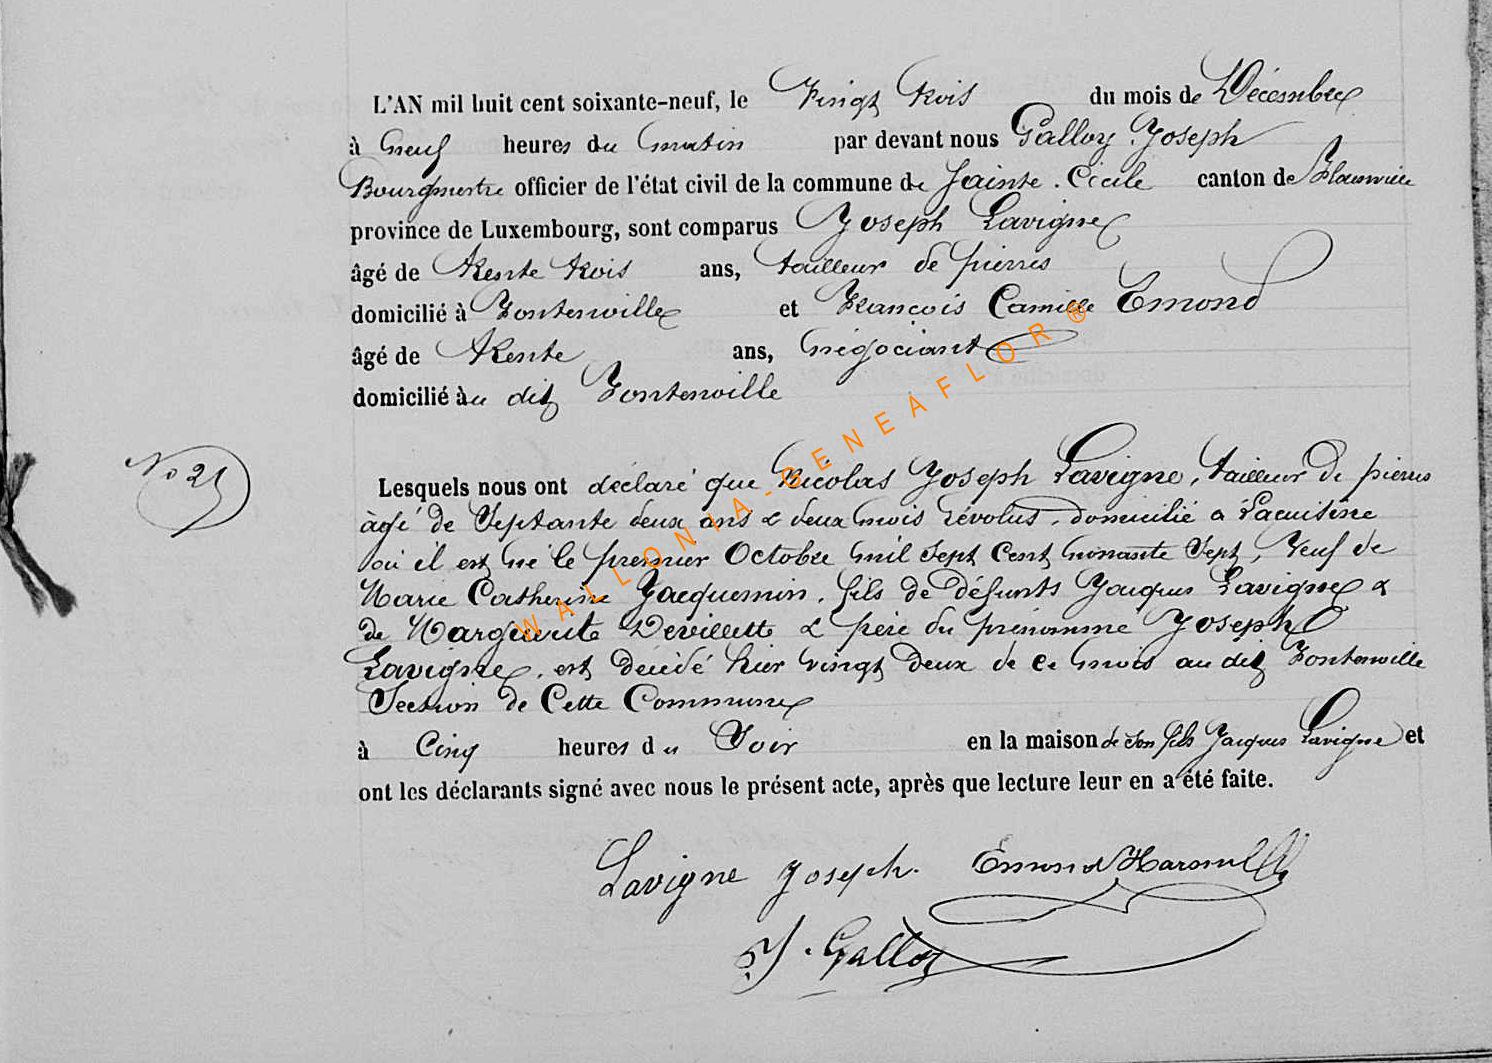 L'AN mil huit cent soixante-neuf, le Vingt trois du mois de Décembre
à neuf heures du matin par devant nous Galloy Joseph
Bourgmestre officier de l'état civil de la commune de Sainte. Cécile canton de Florenville
province de Luxembourg, sont comparus Joseph Lavigne
âgé de trente trois ans, tailleur de pierres
domicilié à Fontenoille et François Camille Emond
âgé de trente ans, négociant
domicilié àu dit Fontenoille
No 21
Lesquels nous ont déclaré que Nicolas Joseph Lavigne, tailleur de pierres
âgé de Septante deux ans & deux mois révolus, domicilié à Lacuisine
où il est né le premier Octobre mil sept cent nonante sept, Veuf de
Marie Catherine Jacquemin, fils de défunts Jacques Lavigne &
de Marguerite Devillette & père du prénommé Joseph
Lavigne, est décédé hier vingt deux de ce mois au dit Fontenoille
Section de Cette Commune
à Cinq heures du Soir en la maison de son fils Jacques Lavigne et
ont les déclarants signé avec nous le présent acte, après que lecture leur en a été faite.
Lavigne Joseph. Emond
J. Galloy
WALLONIA-GENEAFLOR®